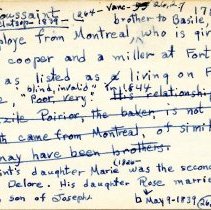 oussaint 1864- Vanc- 26,29 17
Clatsop-1834 brother to Basile,
ploye from Montreal, who is giv
cooper and a miller at Fort
as listed as a living on F
"blind, invalid" in 1844
Poor very relationship
zile Poirior, the baker, is not
came from Montreal, of simil
may have been brothers.
(1820-
nt's daughter Marie was the second
Delore. His daughter Rose married
son of Joseph. b May 9-1839 (26,